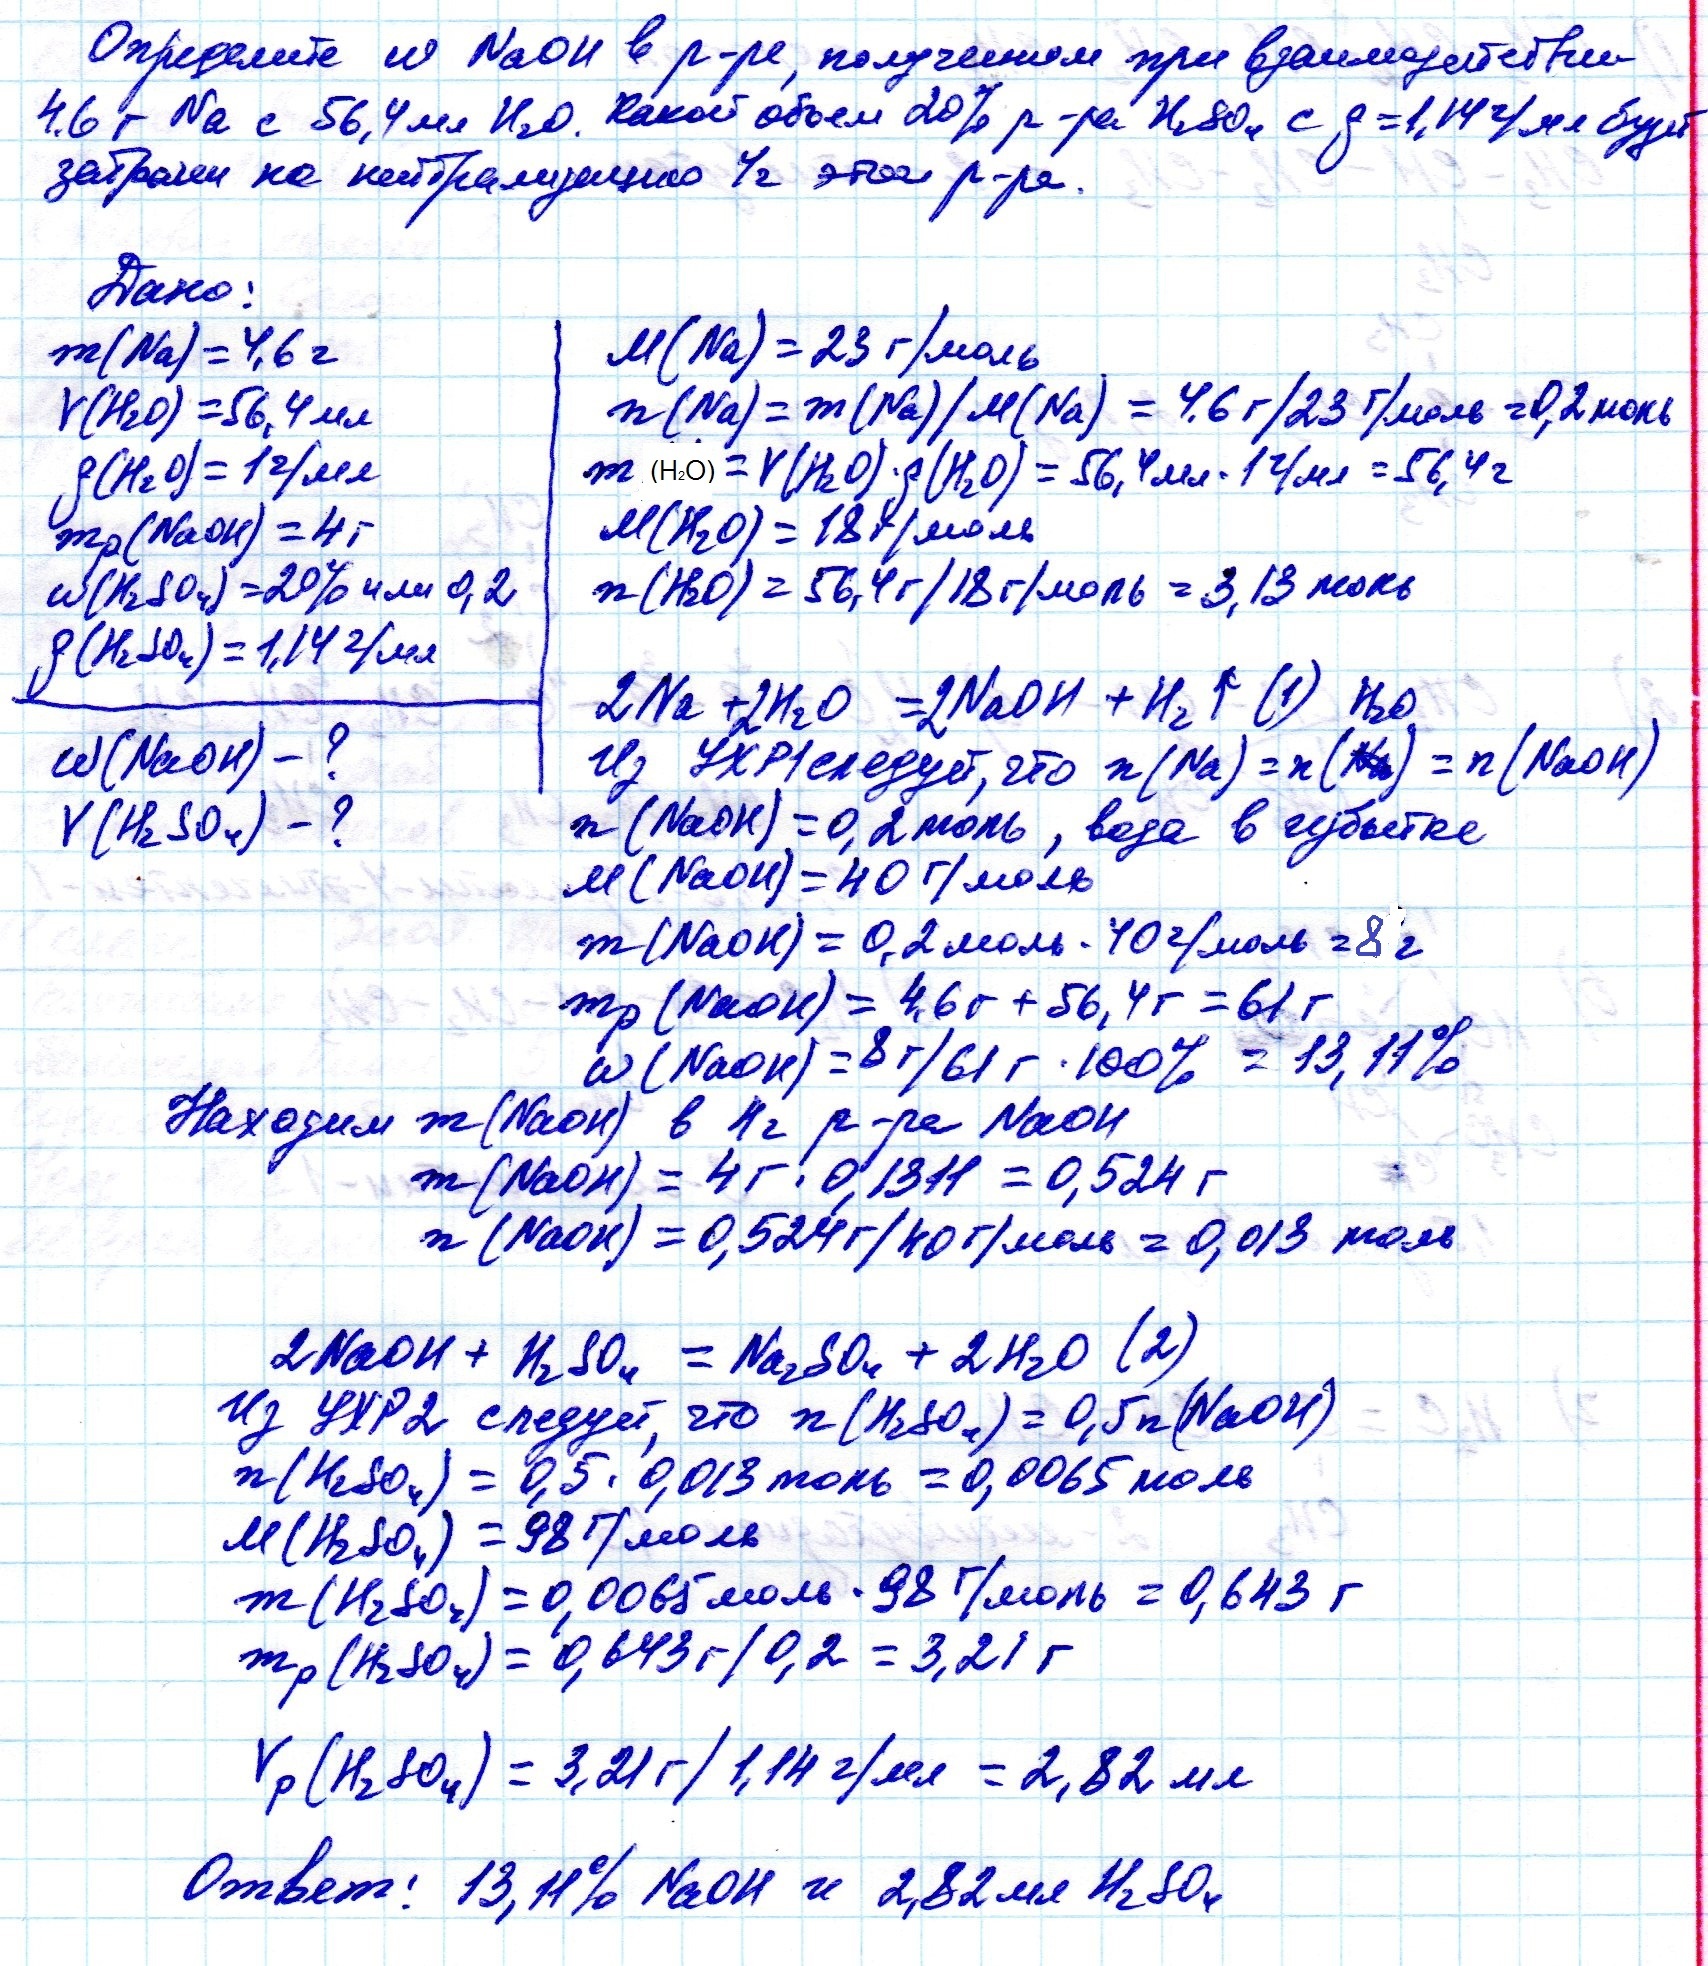 Определите w NaOH в р-ре, полученном при взаимодействии
4.6 г Na с 56,4 мл H₂O. Какой объем 20% р-ра H₂SO₄ с ρ = 1,14 г/мл будет
затрачен на нейтрализацию 4г этого р-ра.
Дано:
m(Na) = 4,6 г
V(H₂O) = 56,4 мл
ρ(H₂O) = 1 г/мл
mр(NaOH) = 4 г
w(H₂SO₄) = 20% или 0,2
ρ(H₂SO₄) = 1,14 г/мл
w(NaOH) - ?
V(H₂SO₄) - ?
M(Na) = 23 г/моль
n(Na) = m(Na)/M(Na) = 4.6 г/23 г/моль = 0,2 моль
m (H₂O) = V(H₂O)·ρ(H₂O) = 56,4 мл · 1 г/мл = 56,4 г
M(H₂O) = 18 г/моль
n(H₂O) = 56,4 г/18 г/моль = 3,13 моль
2Na + 2H₂O = 2NaOH + H₂↑ (1) H₂O
Из УХР1 следует, что n(Na) = n( ) = n(NaOH)
n(NaOH) = 0,2 моль, вода в избытке
M(NaOH) = 40 г/моль
m(NaOH) = 0,2 моль · 40 г/моль = 8 г
mр(NaOH) = 4.6 г + 56,4 г = 61 г
w(NaOH) = 8 г/61 г · 100% = 13,11%
Находим m(NaOH) в 4г р-ра NaOH
m(NaOH) = 4 г · 0,1311 = 0,524 г
n(NaOH) = 0,524 г/40 г/моль = 0,013 моль
2NaOH + H₂SO₄ = Na₂SO₄ + 2H₂O (2)
Из УХР2 следует, что n(H₂SO₄) = 0,5n(NaOH)
n(H₂SO₄) = 0,5 · 0,013 моль = 0,0065 моль
M(H₂SO₄) = 98 г/моль
m(H₂SO₄) = 0,0065 моль · 98 г/моль = 0,643 г
mр(H₂SO₄) = 0,643 г/0,2 = 3,21 г
Vр(H₂SO₄) = 3,21 г/1,14 г/мл = 2,82 мл
Ответ: 13,11% NaOH и 2,82 мл H₂SO₄